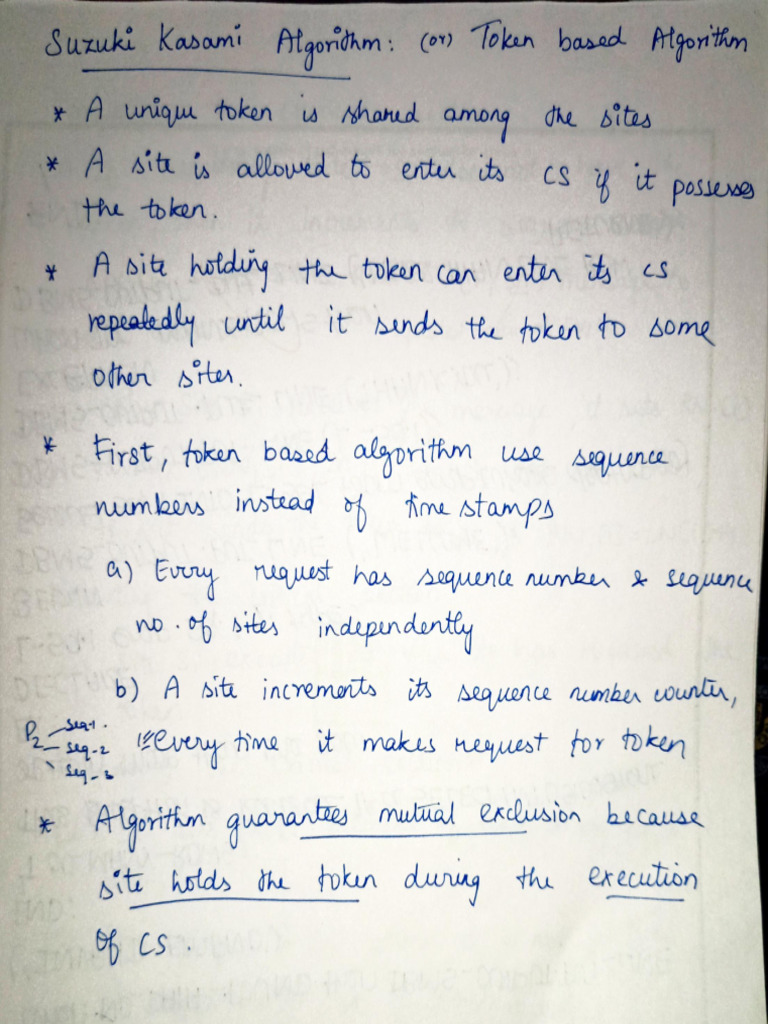 Suzuki Kasami Algorithm: (or) Token based Algorithm
* A unique token is shared among the sites
* A site is allowed to enter its CS if it possesses
the token.
* A site holding the token can enter its CS
repeatedly until it sends the token to some
other sites.
* First, token based algorithm use sequence
numbers instead of time stamps
a) Every request has sequence number & sequence
no. of sites independently
b) A site increments its sequence number counter,
P2 seq-1.
seq-2
seq-3
every time it makes request for token
* Algorithm guarantees mutual exclusion because
site holds the token during the execution
of CS.